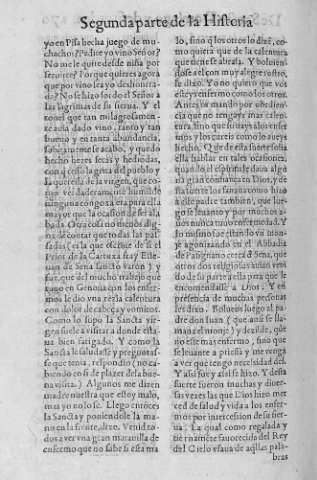 Segunda parte de la Historia
yo en Pisa hecha juego de mu-
chachos? Pedite yo vino Señor?
No me le quite desde niña por
serviros? Porque quieres agora
que por vino sea yo deshonra-
da? No se hizo sordo el Señor a
las lagrimas de su sierva. Y el
tonel que tan milagrosamen-
te avia dado vino, tanto, y tan
bueno y en tanta abundancia,
subitamente se acabo, y quedo
hecho heces secas y hediondas,
con q cesso la grita del pueblo y
la querella de la virgen, que co-
mo verdaderamente humilde
ninguna congoxa era para ella
mayor que la ocasion de ser ala
bada. Otra cosa no menos dig-
na de contar que todas las pas-
sadas es la que escrive de si el
Prior de la Cartuxa fray Este-
van de Sena sancto varon) y
fue, que del mucho trabajo que
tuvo en Genova con los enfer-
mos le dio una rezia calentura
con dolor de cabeça y vomitos.
Como lo supo la Sancta vir-
gen fuele a visitar a donde esta-
va bien fatigado. Y como la
Sancta le saludasse y preguntas-
se que tenia, respondio (no ca-
biendo en si de plazer de la bue-
na visita.) Algunos me dizen
madre nuestra que estoy malo,
mas yo no lo se. Llego entonces
la Sancta y poniendole la ma-
no en la frente, dize. Venid to-
dos a ver una gran maravilla de
enfermo que no sabe si esta ma
lo, sino q los otros lo dizē, co-
mo quiera que de la calentura
que tiene se abrasa. Y bolvien-
dose a el con muy alegre rostro,
le dixo. Yo no quiero que vos
esteys enfermo como los otros.
Antes os mando por obedien-
cia que no tengays mas calen-
tura, sino que sirvays a los enfer-
mos y los cureis como lo aveys
hecho. Que de esta suerte solia
ella hablar en tales ocasiones,
quando el espiritu le dava algu-
na gran confiança en Dios, y de
esta suerte los sanava como hizo
a este padre tambien, que lue-
go se levanto y por muchos a-
ños nunca tuvo enfermedad. Y
lo mismo fue estando un mon-
je agonizando en el Abbadia
de Passignano cerca d Sena, que
otros dos religiosos avian veni
do de su parte a ella para que le
encomendasse a Dios. Y en
presencia de muchas personas
les dixo. Bolveos luego al pa-
dre don Juan (que ansi se lla-
mava el monje) y dezilde, que
no este mas enfermo, sino que
se levante a priessa y me venga
a ver que tengo necesidad del.
Y assi fue y assi se hizo. Y desta
suerte fueron muchas y diver-
sas vezes las que Dios hizo mer
ced de salud y vida a los enfer-
mos por intercession de su sier-
va. La qual como regalada y
tiernamēte favorecida del Rey
del Cielo usava de aqllas pala-
bras